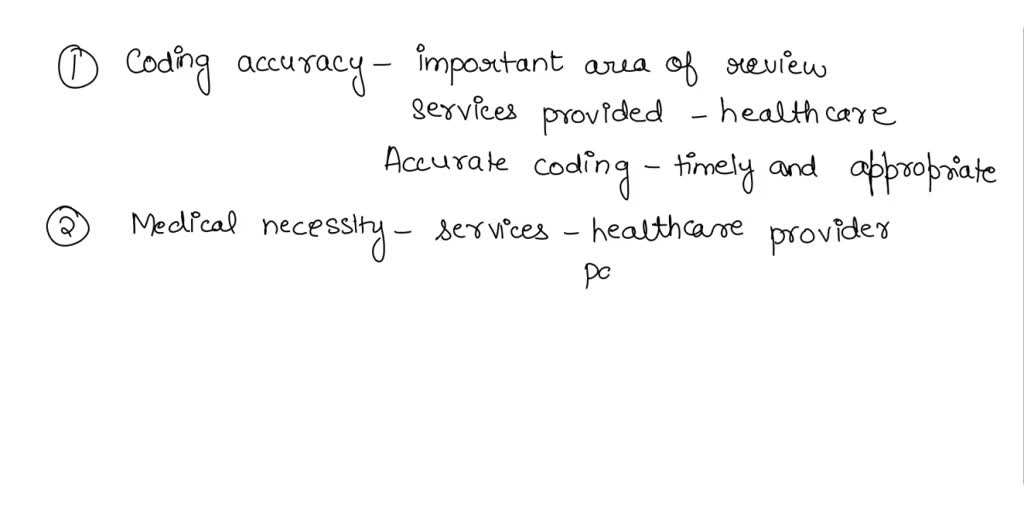 ① Coding accuracy - important area of review
services provided - healthcare
Accurate coding - timely and appropriate
② Medical necessity - services - healthcare provider
pc